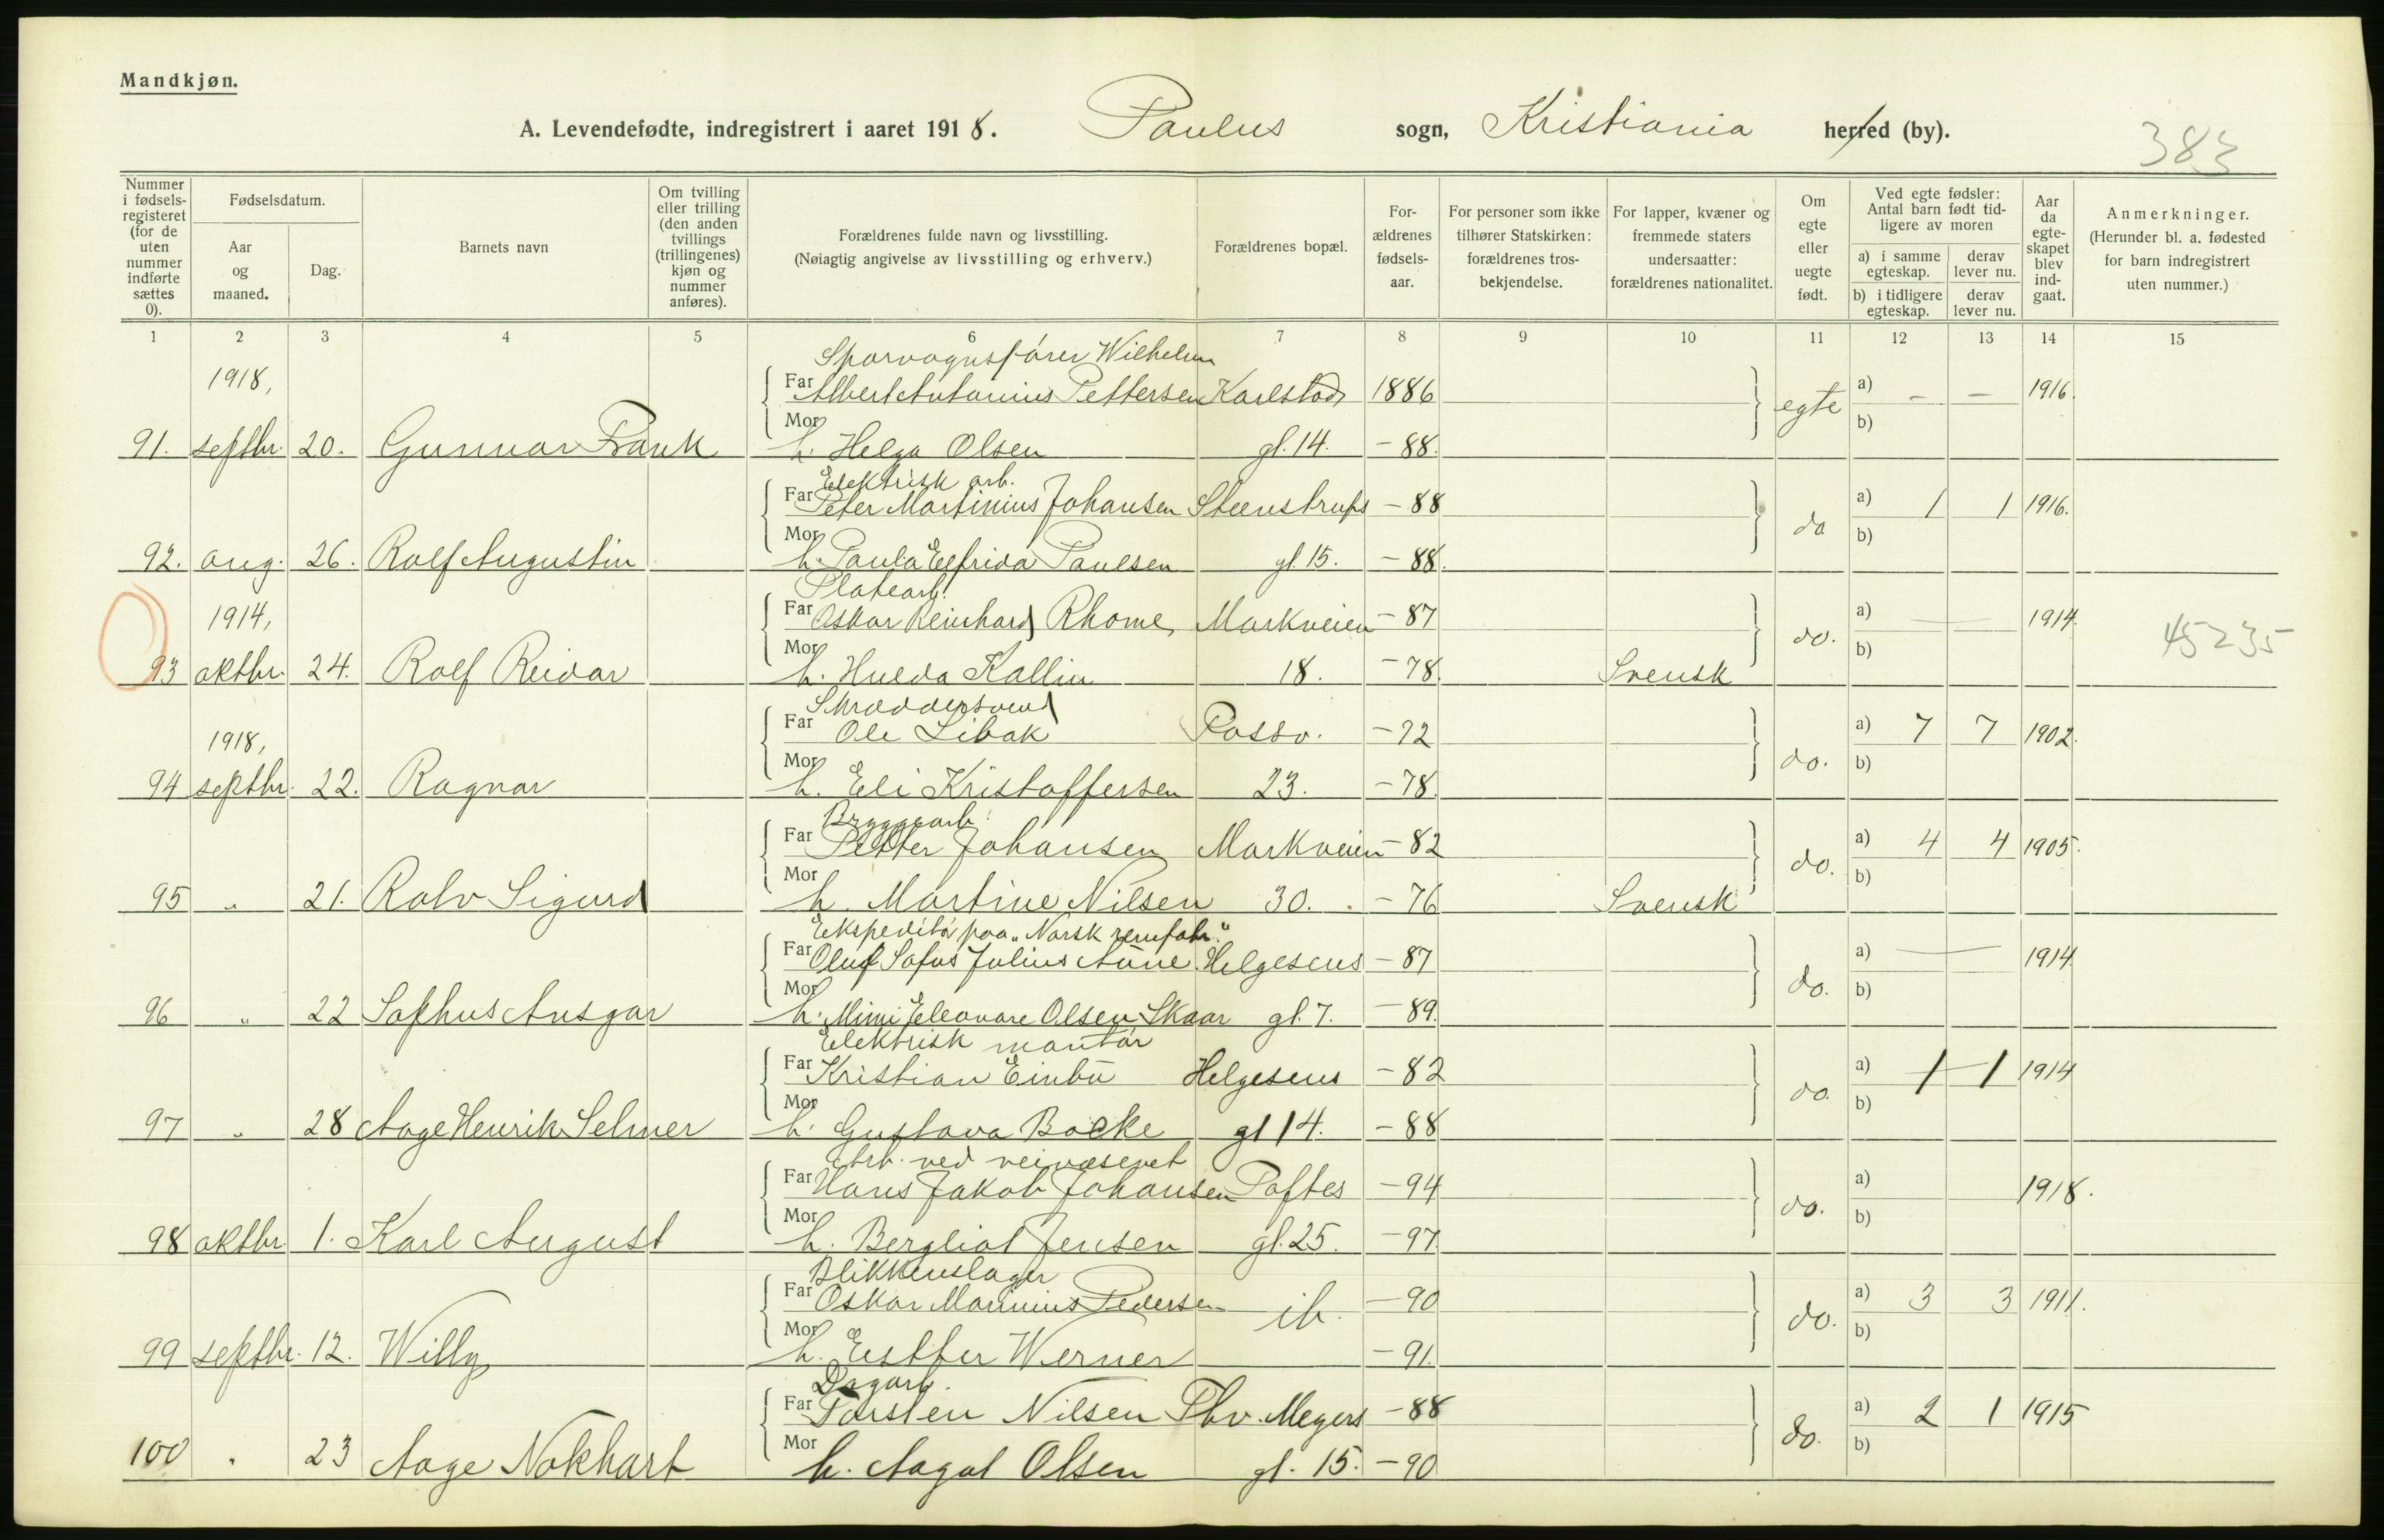 Mandkjøn.
A. Levendefødte, indregistrert i aaret 1918. Paulus sogn, Kristiania herred (by).
383
Nummer i fødsels-registeret (for de uten nummer indførte sættes 0).
Fødselsdatum.
Aar og maaned.
Dag.
Barnets navn
Om tvilling eller trilling (den anden tvillings (trillingenes) kjøn og nummer anføres).
Forældrenes fulde navn og livsstilling.
(Nøiagtig angivelse av livsstilling og erhverv.)
Forældrenes bopæl.
For-ældrenes fødsels-aar.
For personer som ikke tilhører Statskirken: forældrenes tros-bekjendelse.
For lapper, kvæner og fremmede staters undersaatter: forældrenes nationalitet.
Om egte eller uegte født.
Ved egte fødsler: Antal barn født tid-ligere av moren
a) i samme egteskap.
derav lever nu.
b) i tidligere egteskap.
derav lever nu.
Aar da egte-skapet blev ind-gaat.
Anmerkninger.
(Herunder bl. a. fødested for barn indregistrert uten nummer.)
1 2 3 4 5 6 7 8 9 10 11 12 13 14 15
Sporvognsfører Wilhelm
1918, Far Albert Antonius Pettersen Karlstads 1886 egte a) - - 1916.
91. septbr. 20. Gunnar Frank Mor h. Helga Olsen gl. 14. -88. b)
Elektrisk arb.
Far Peter Martinius Johansen Steenstrups -88 do a) 1 1 1916.
92. aug. 26. Rolf Augustin Mor h. Paula Elfrida Paulsen gl. 15. -88. b)
Platearb.
1914, Far Oskar Reinhard Rhome, Markveien -87 do. a) - - 1914. 45235
93 oktbr. 24. Rolf Reidar Mor h. Hulda Kallin 18. -78. Svensk b)
Skræddersvend
1918, Far Ole Libak Possv. -72 do. a) 7 7 1902.
94 septbr. 22. Ragnar Mor h. Eli Kristoffersen 23. -78. b)
Bryggearb.
Far Petter Johansen Markveien -82 do. a) 4 4 1905.
95 " 21. Ralv Sigurd Mor h. Martine Nilsen 30. -76 Svensk b)
Ekspeditør paa "Norsk remfabr."
Far Oluf Sofus Julius Aune Helgesens -87 do. a) - - 1914
96 " 22 Sophus Ansgar Mor h. Mimi Eleonore Olsen Skaar gl. 7. -89. b)
Elektrisk montør
Far Kristian Einbu Helgesens -82 do. a) 1 1 1914
97 " 28 Aage Henrik Selmer Mor h. Gustava Bakke gl 14. -88 b)
Arb. ved veivæsenet
Far Hans Jakob Johansen Toftes -94 do. a) 1918.
98 oktbr. 1. Karl August Mor h. Bergliot Jensen gl. 25. -97. b)
Blikkenslager
Far Oskar Marinius Pedersen ib. -90 do. a) 3 3 1911.
99 septbr. 12. Willy Mor h. Esther Werner -91. b)
Dagarb.
Far Torsten Nilsen Thv. Meyers -88 do. a) 2 1 1915
100 " 23 Aage Nokhart Mor h. Aagot Olsen gl. 15. -90 b)